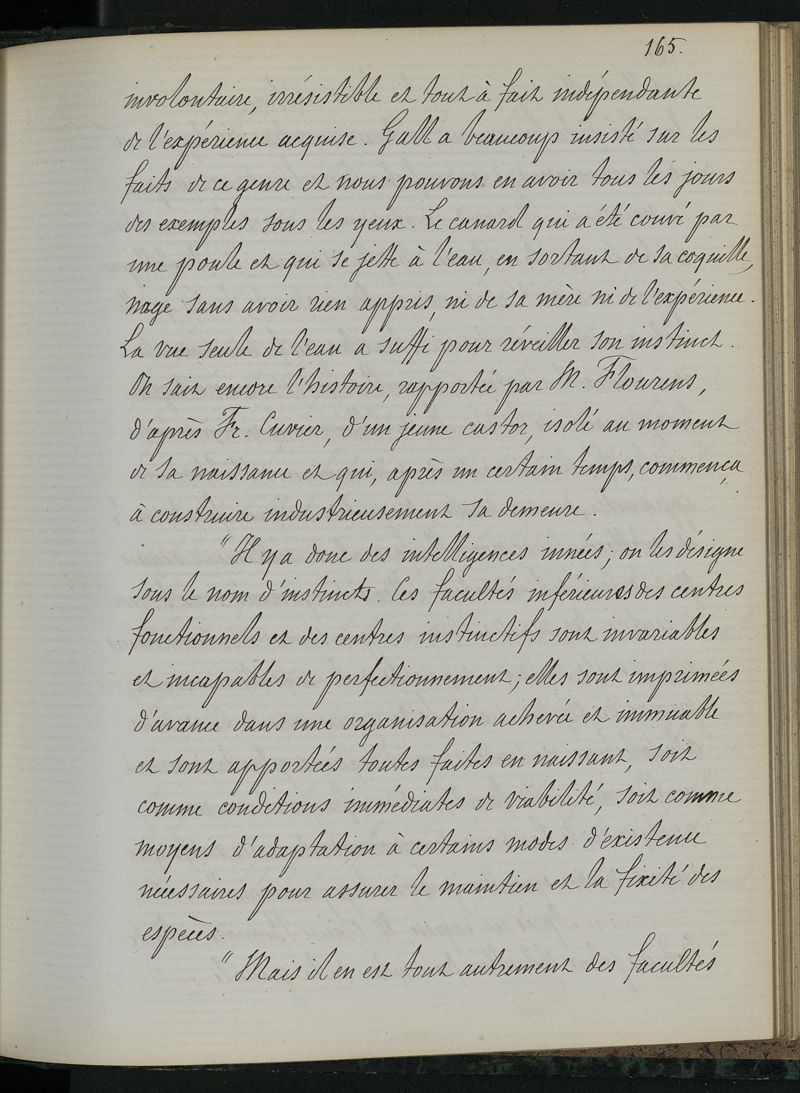 165.
involontaire, irrésistible et tout à fait indépendante
de l'expérience acquise. Gall a beaucoup insisté sur les
faits de ce genre et nous pouvons en avoir tous les jours
des exemples sous les yeux. Le canard qui a été couvé par
une poule et qui se jette à l'eau, en sortant de sa coquille,
nage sans avoir rien appris, ni de sa mère ni de l'expérience.
La vue seule de l'eau a suffi pour réveiller son instinct.
On sait encore l'histoire, rapportée par M. Flourens,
d'après Fr. Cuvier, d'un jeune castor, isolé au moment
de sa naissance et qui, après un certain temps, commença
à construire industrieusement sa demeure.
"Il y a donc des intelligences innées; on les désigne
sous le nom d'instincts. Ces facultés inférieures des centres
fonctionnels et des centres instinctifs sont invariables
et incapables de perfectionnement; elles sont imprimées
d'avance dans une organisation achevée et immuable
et sont apportées toutes faites en naissant, soit
comme conditions immédiates de viabilité, soit comme
moyens d'adaptation à certains modes d'existence
nécessaires pour assurer le maintien et la fixité des
espèces.
"Mais il en est tout autrement des facultés